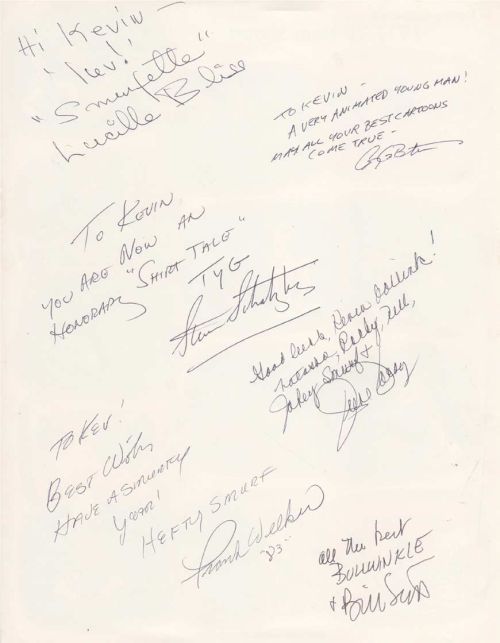 Hi Kevin —
"luv!
"Smurfette"
Lucille Bliss
TO KEVIN —
A VERY ANIMATED YOUNG MAN!
MAY ALL YOUR BEST CARTOONS
COME TRUE —
TO KEVIN
YOU ARE NOW AN
HONORARY "SHIRT TALE"
TYG
Steve Schatzberg
Good luck, Kevin dollink!
Natasha, Rocky, Nell,
Jokey Smurf &
June Foray
TO KEV!
BEST Wishes
HAVE A SMURFY
YEAR!
HEFTY SMURF
Frank Welker
"83"
all the best
BULLWINKLE
& Bill Scott